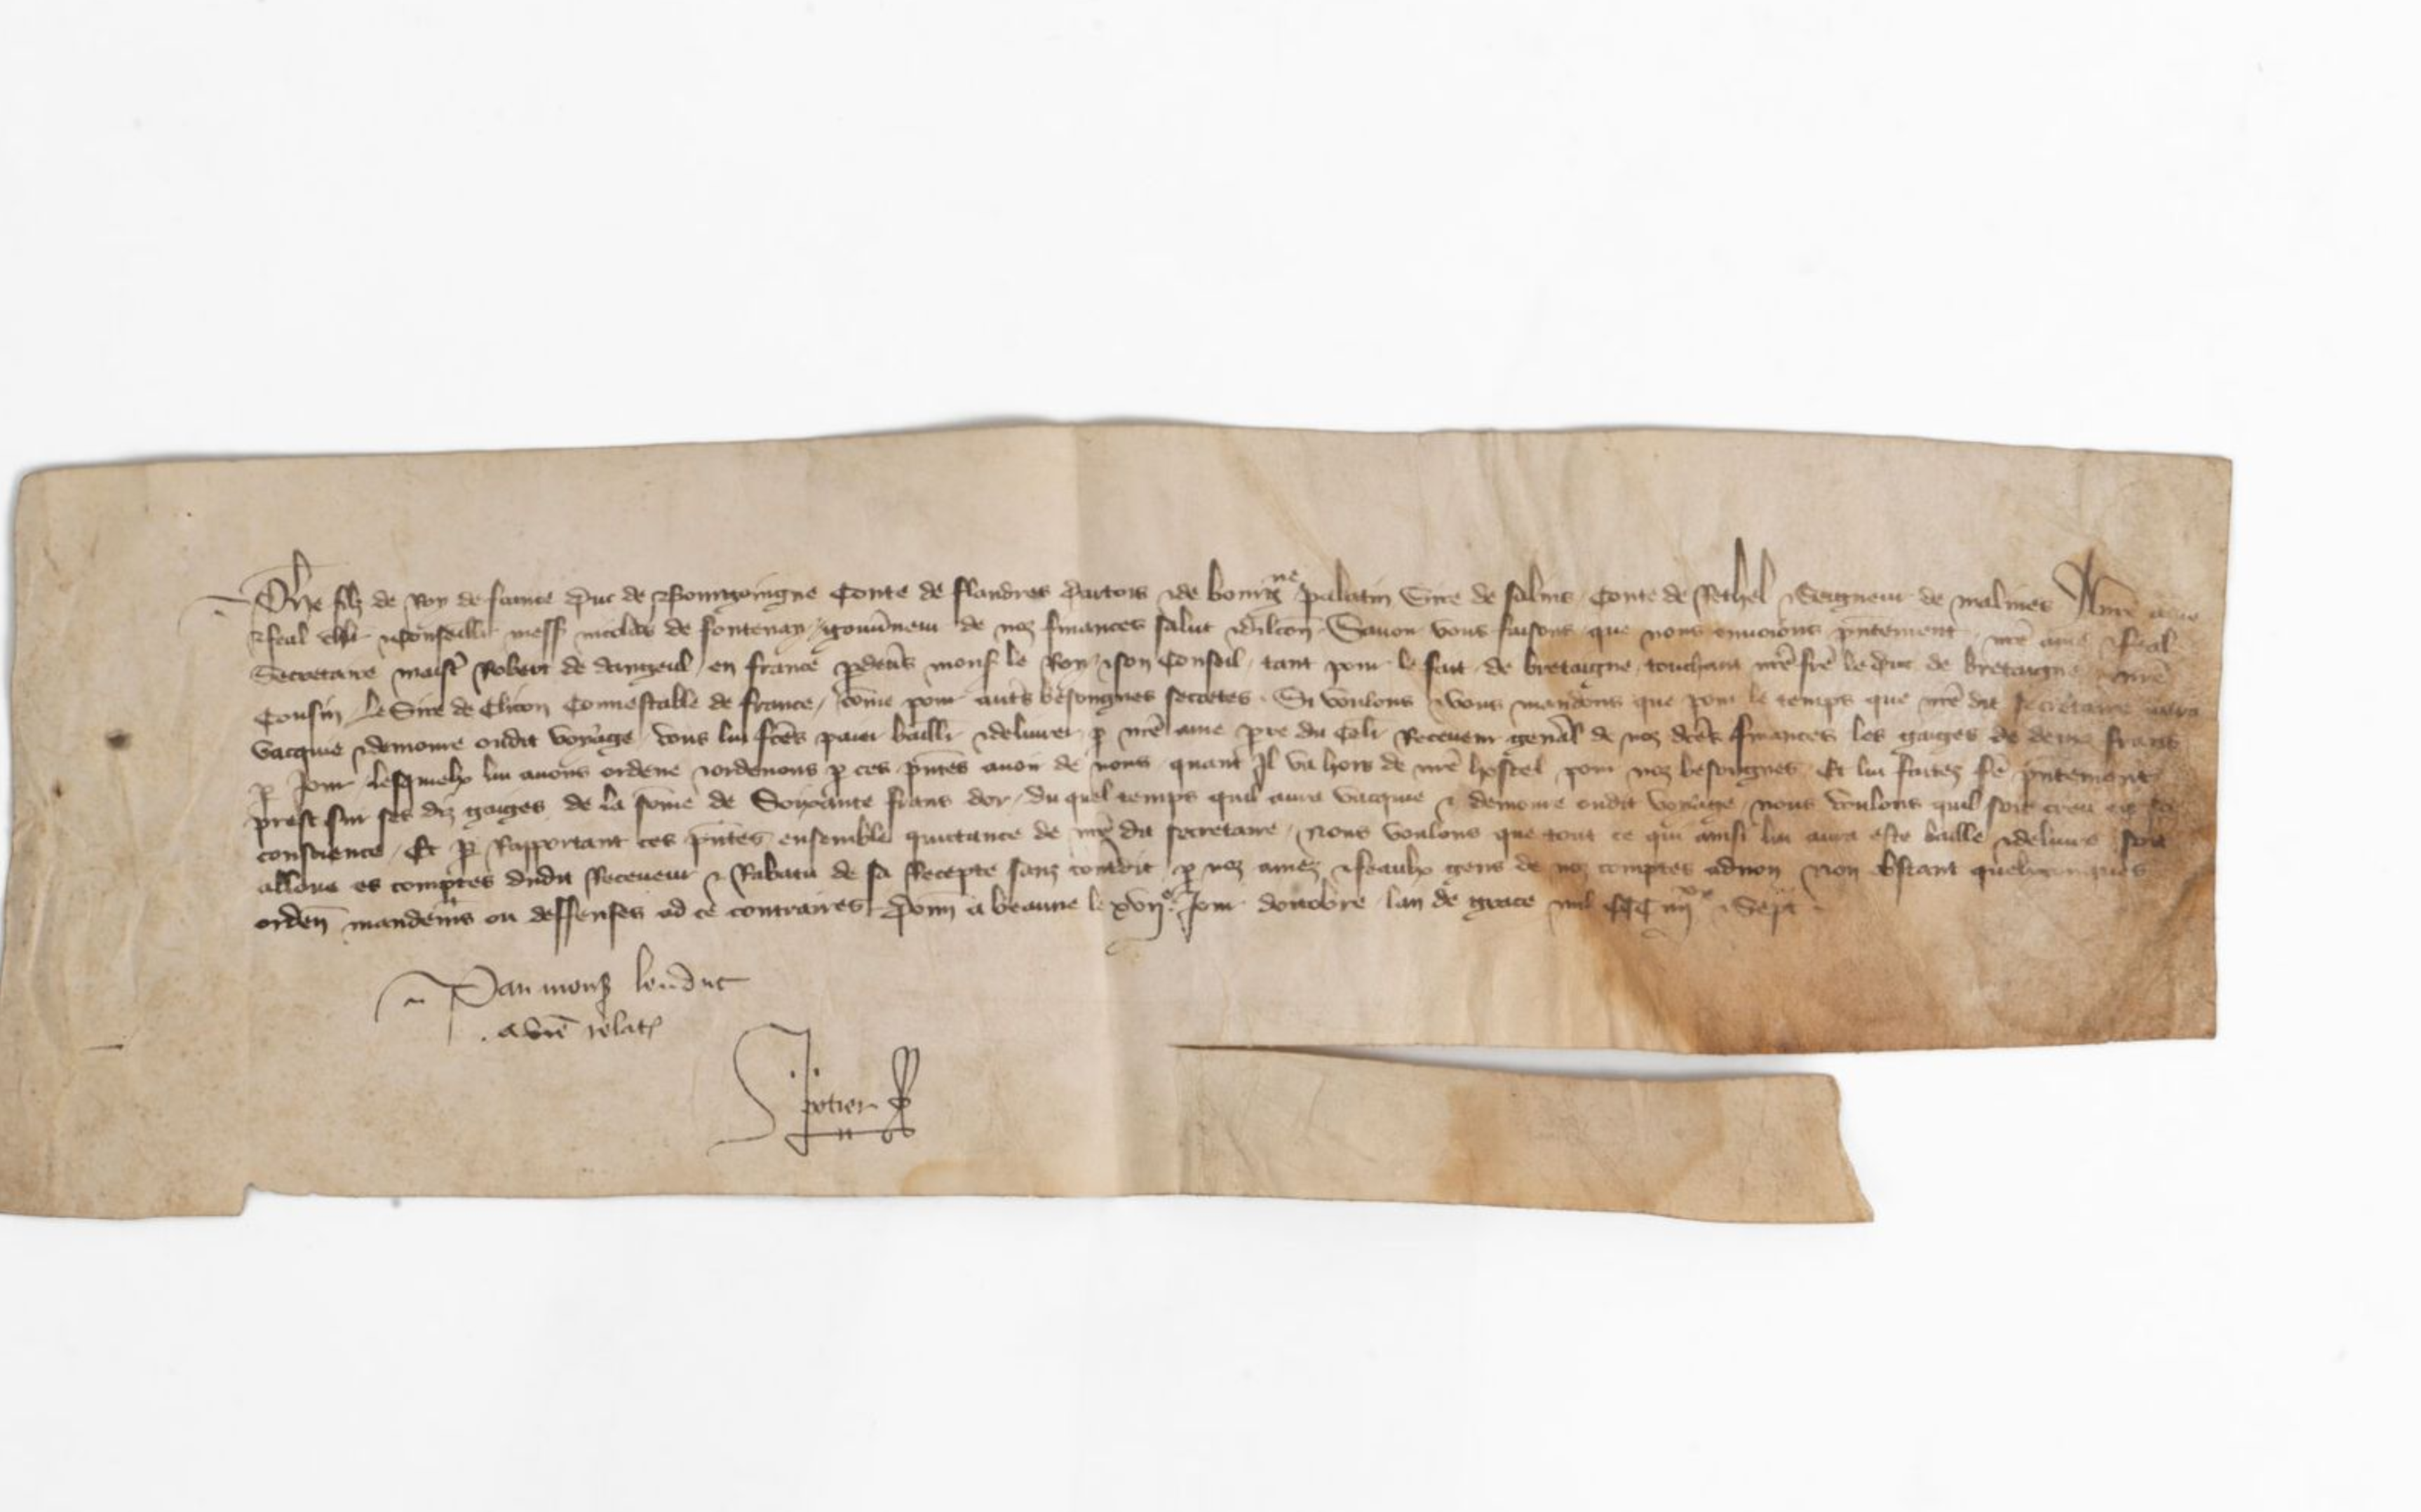 Phe filz de Roy de france Duc de Bourgoingne Conte de flandres dartois et de bourgne palatin Sire de salins Conte de Rethel et Seigneur de malines A nre ame
et feal chlr et Conseillr mess nicolas de fontenay gouvneur de noz finances salut et dilcon Savoir vous faisons que nous envoions pntement nre ame et feal
Secretaire maistr Robert de dangeul en france pdevs mons le Roy et son Conseil tant pour le fait de bretaigne touchant nre fre le Duc de bretaigne et nre
Cousin le Sire de Clicon Connestable de france come pour auts besongnes secretes Si voulons et vous mandons que pour le temps que nre dit secretaire aura
vacquie et demoure oudit voyage vous lui fces paier baillr et delivrer p nre ame pre du Celr Receveur genal de noz dces finances les gaiges de deux frans
p Jour lesquelx lui avons ordene et ordenons p ces pntes avoir de nous quant Il va hors de nre hostel pour noz besongnes Et lui faites fe pntement
prest sur ses diz gaiges de la some de Soixante frans dor du quel temps quil aura vacquie et demoure oudit voyage nous voulons quil soit creu en sa
conscience Et p Rapportant ces pntes ensemble quictance de nre dit secretaire Nous voulons que tout ce qui ainsi lui aura este baille et delivre soit
alloue es comptes dudit Receveur et Rabatu de sa Recepte sanz contredit p noz amez et feaulx gens de noz comptes a dijon Non obstant quelxconques
orden mandemens ou deffenses ad ce contraires Donn a beaune le xvije Jour doctobre lan de grace mil CCC iiijxx et Sept
Par mons le duc
a vre relat
potier